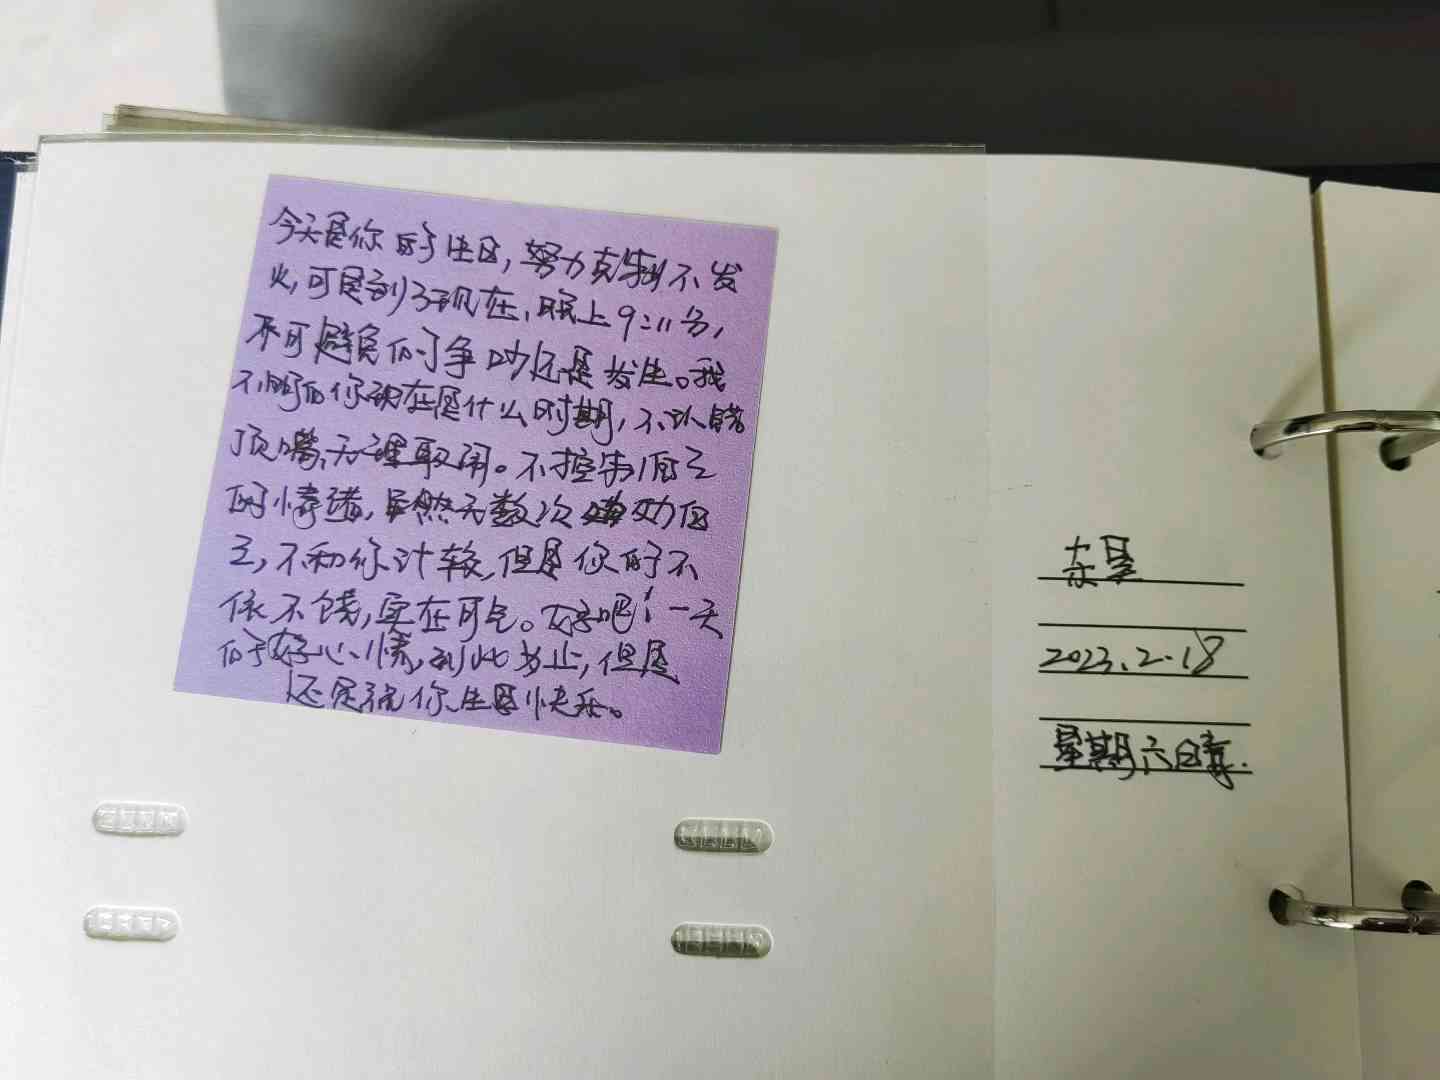 今天是你的生日,努力克制不发
火,可是到了现在,晚上9:11分,
不可避免的争吵还是发生。我
不明白你现在是什么时期,不认错
顶嘴、无理取闹。不控制自己
的情绪,虽然无数次劝自
己,不和你计较,但是你的不
依不饶,实在可气。好吧!一天
的好心情,到此为止,但是
还是祝你生日快乐。
2023.2.18
星期六日晴.